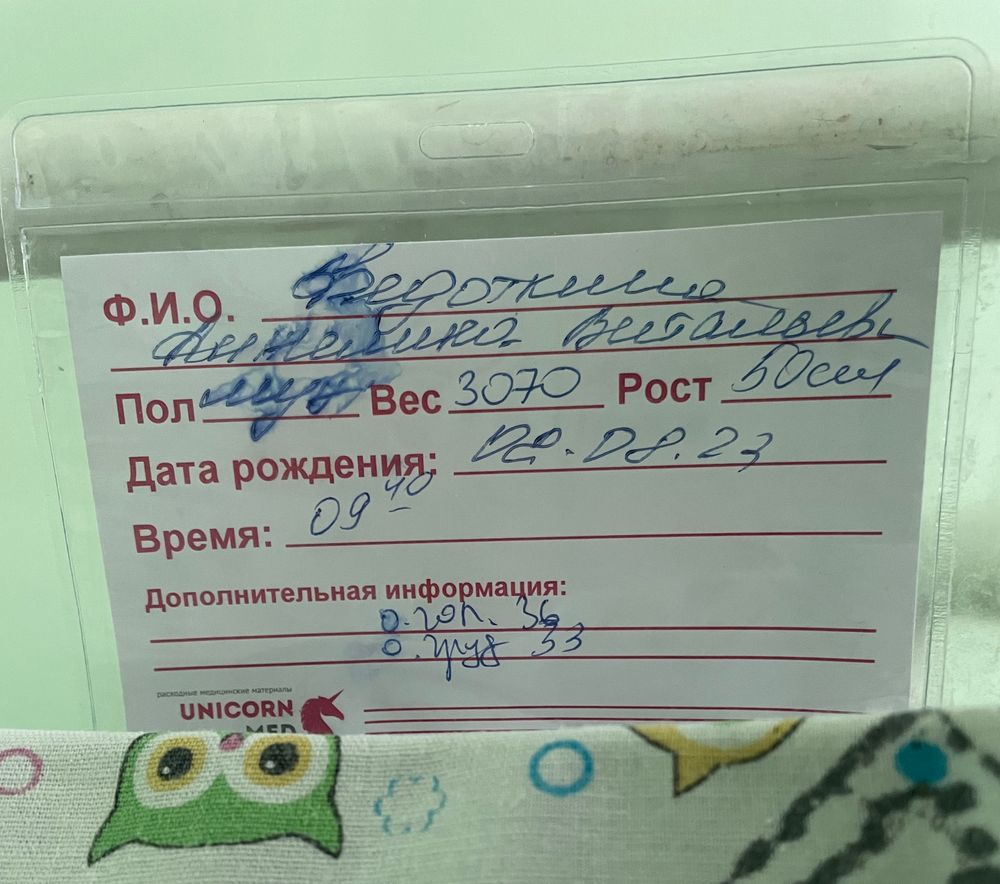 Ф.И.О. Федоткина
Анжелика Витальевн
Пол муж Вес 3070 Рост 50см
Дата рождения: 02.08.23
Время: 09 40
Дополнительная информация:
о. гол. 36
о. груд 33
расходные медицинские материалы
UNICORN
MED